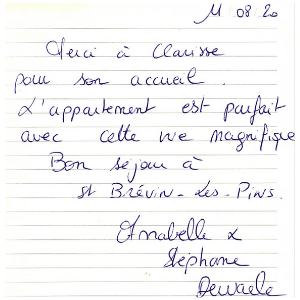 11 08 20
Merci à Clarisse
pour son accueil.
L'appartement est parfait
avec cette vue magnifique
Bon séjour à
St Brévin-Les-Pins.
Annabelle &
Stéphane
Dewaele